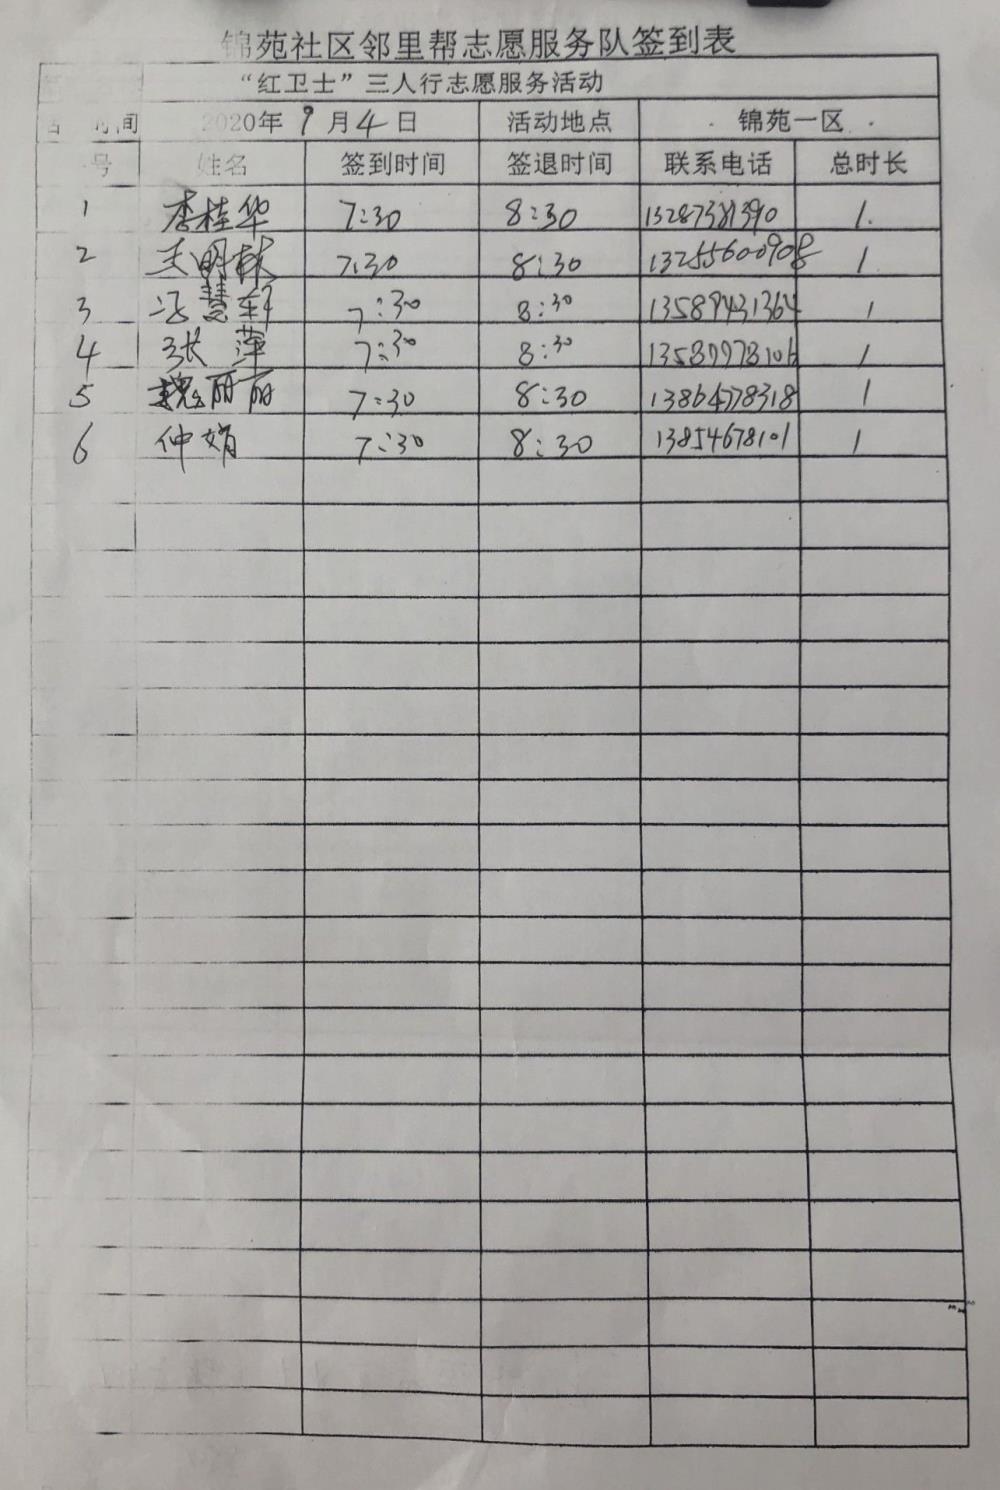 锦苑社区邻里帮志愿服务队签到表
“红卫士”三人行志愿服务活动
时间 2020年 9 月 4 日 活动地点 锦苑一区
号 姓名 签到时间 签退时间 联系电话 总时长
1 李桂华 7:30 8:30 13287381390 1
2 王明秋 7:30 8:30 13255600908 1
3 冯慧轩 7:30 8:30 13589431364 1
4 张萍 7:30 8:30 13589978106 1
5 魏丽丽 7:30 8:30 13864778318 1
6 仲娟 7:30 8:30 13854678101 1